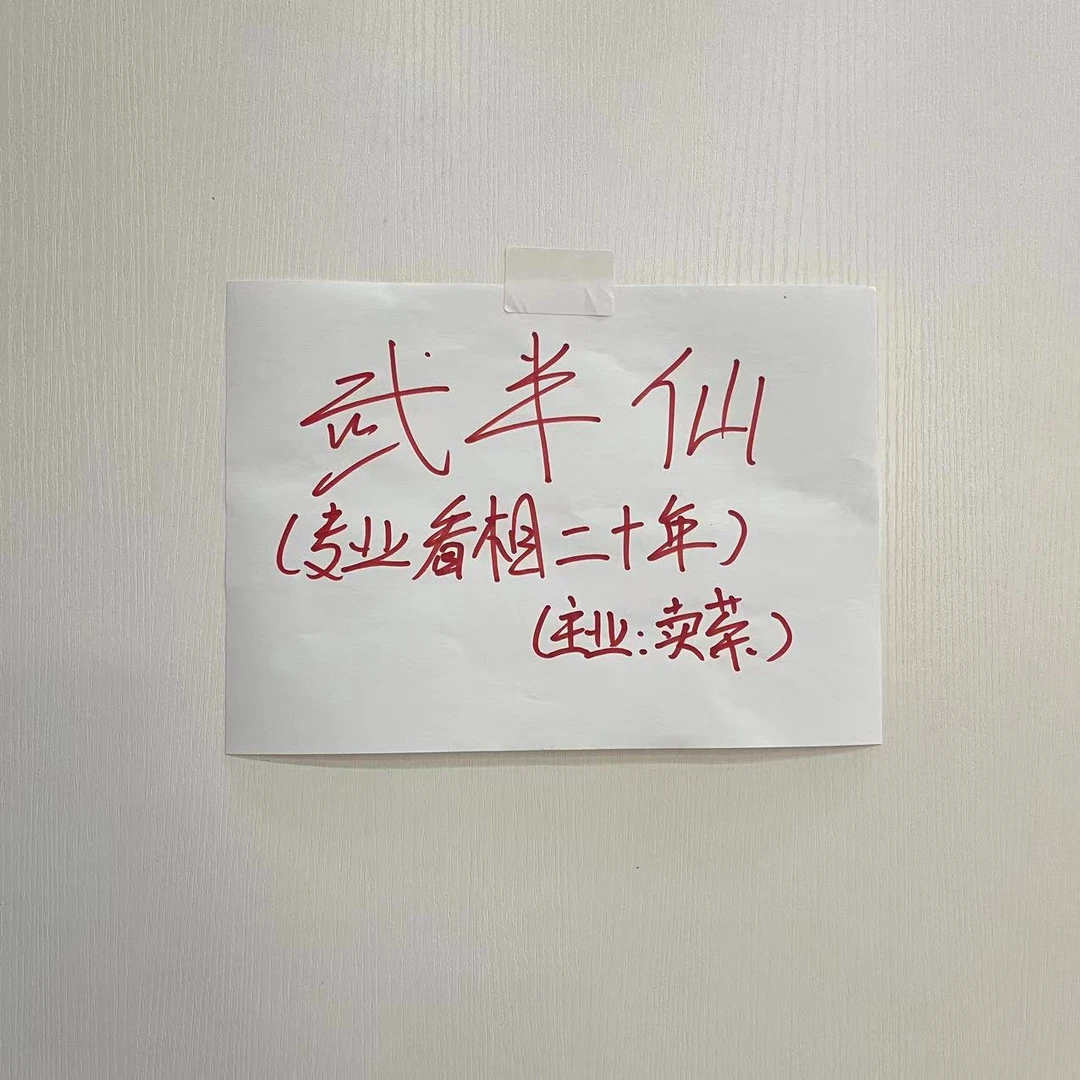 武半仙
(专业看相二十年)
(主业:卖菜)